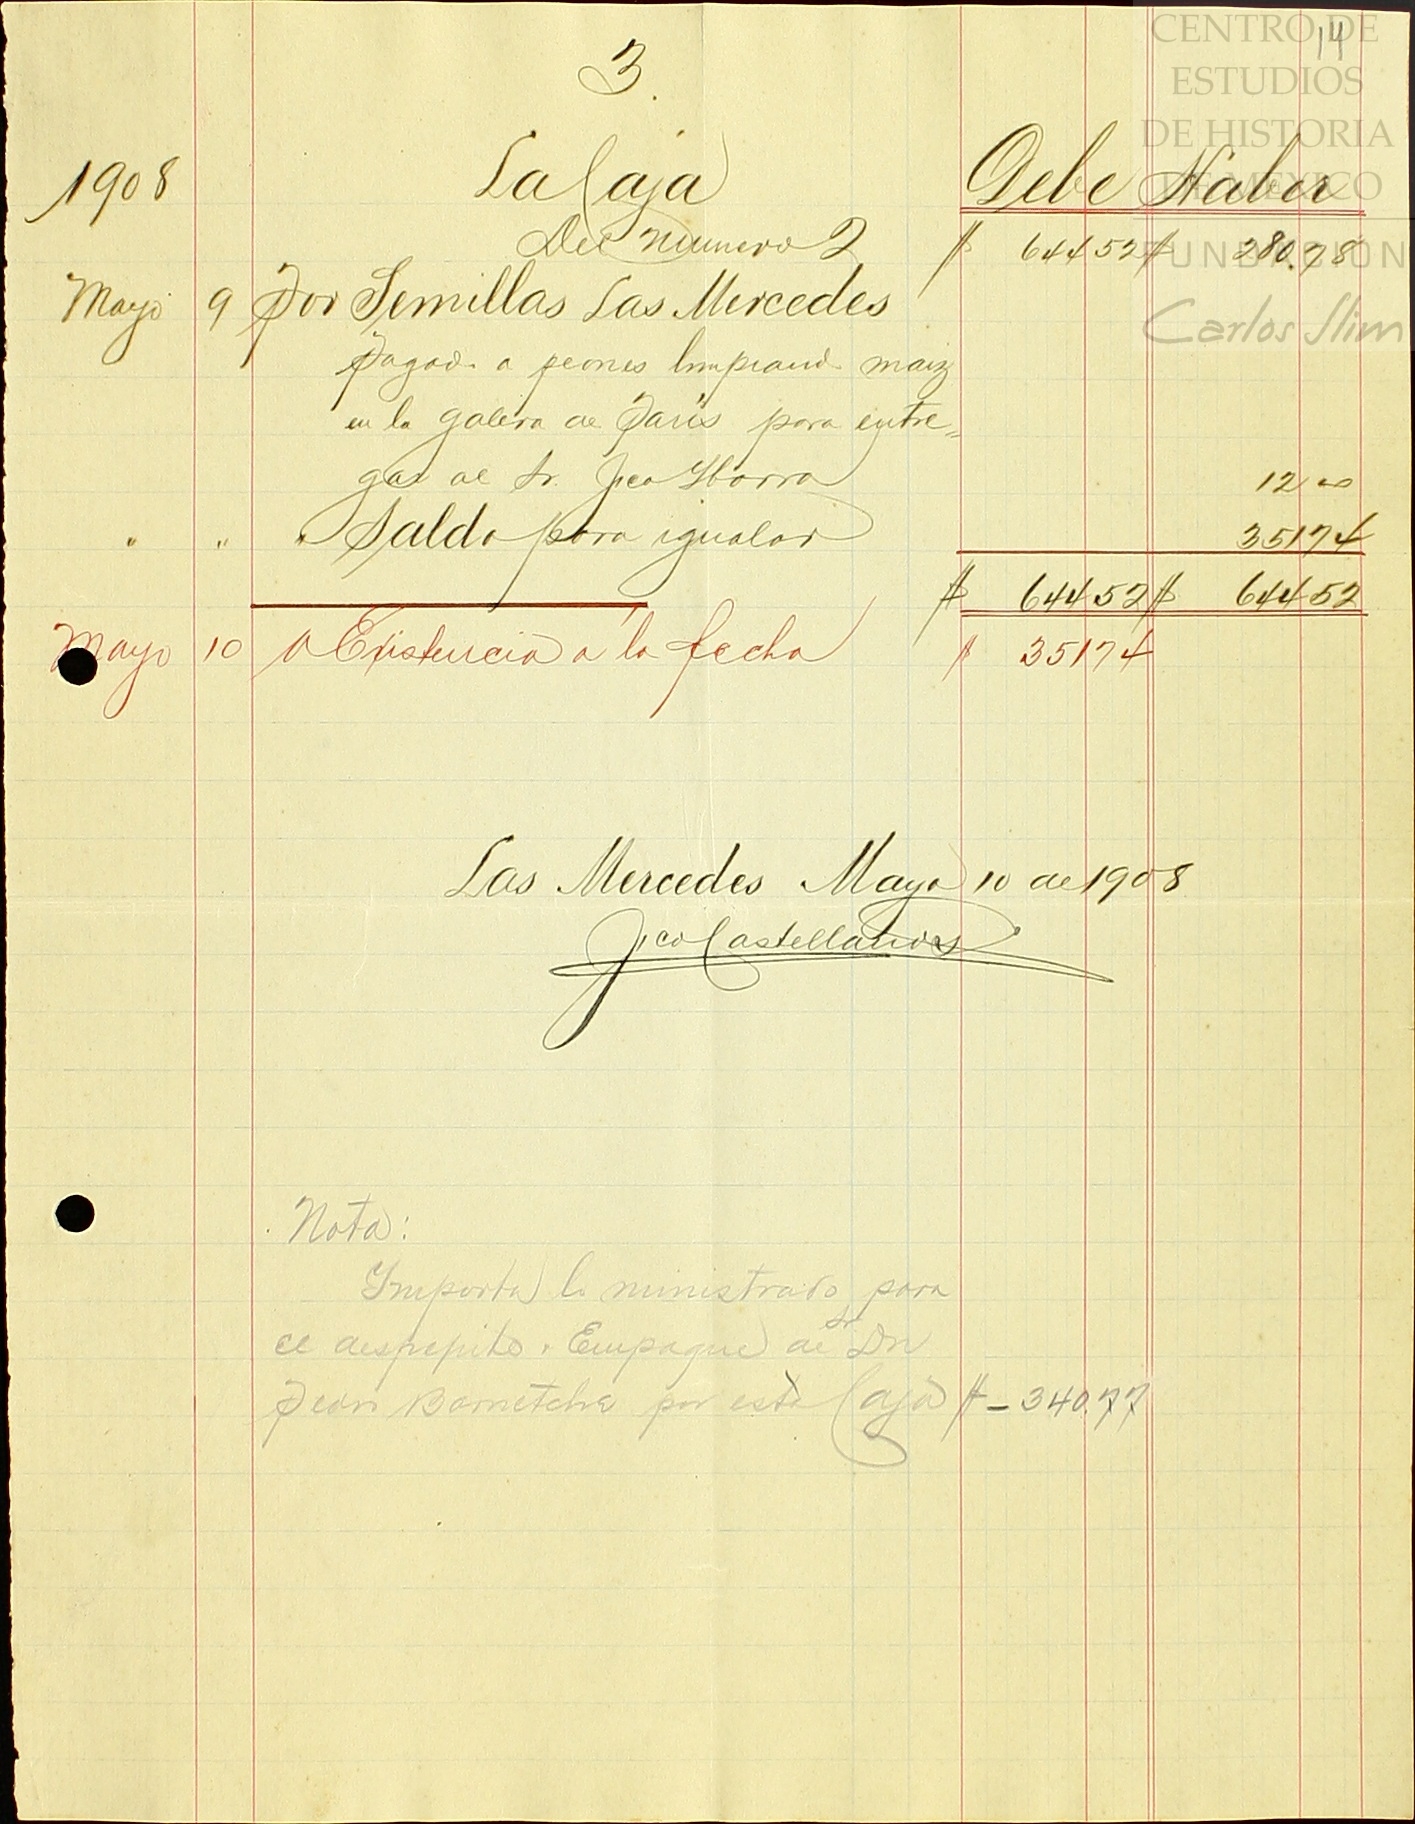 14
3.
1908 La Caja Debe Haber
Del numero 2 $ 644 52 $ 280.78
Mayo 9 Por Semillas Las Mercedes
Pagado a peones limpiando maiz
en la galera de Paris para entre=
gar al Sr. Fco Ybarra 12 00
" " " Saldo para igualar 351 74
$ 644 52 $ 644 52
Mayo 10 A Existencia a la fecha $ 351 74
Las Mercedes Mayo 10 de 1908
Fco Castellanos
Nota:
Importa lo ministrado para
el despepite y Empaque de Sr Dn
Jean por esta Caja $ - 340.77
CENTRO DE
ESTUDIOS
DE HISTORIA
DE MÉXICO
FUNDACIÓN
Carlos Slim